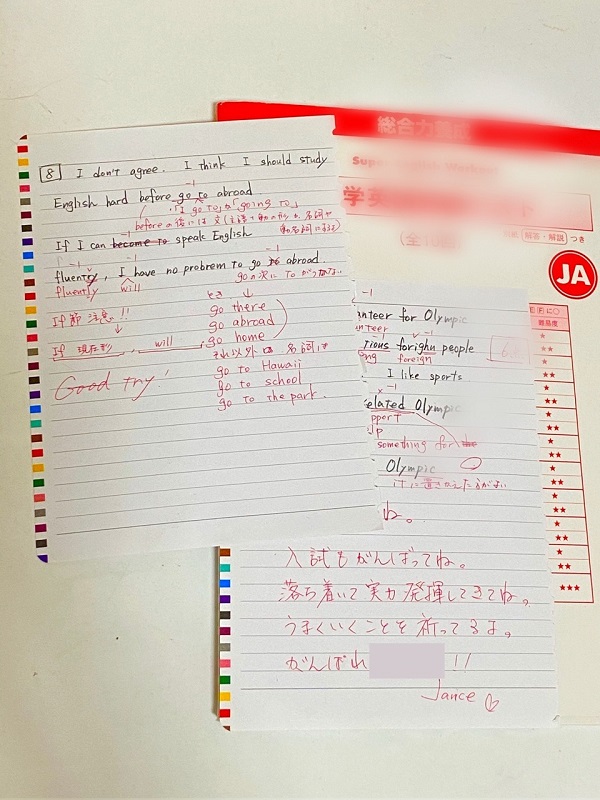 8 I don't agree. I think I should study
-1
English hard before go to abroad
「I go to」か「going to」
If I can become to speak English
-1
fluentry, I have no prebrem to go to abroad.
fluently will
goの次に toがつかない
If節 注意!!
If 現在形, will
Good try.
go there
go abroad
go home
それ以外は 名詞は
go to Hawaii
go to school
go to the park.
総合力
学英
つき
JA
難易度
-1
anteer for Olympic
nteer
-1
tious forighn people
ng foreign
I like sports
-1
elated Olympic
pport
something for
Olympic
itに置きかえた方がよい
ね。
入試もがんばってね。
落ち着いて実力発揮してきてね。
うまくいくことを祈ってるよ。
がんばれ !!
Jance